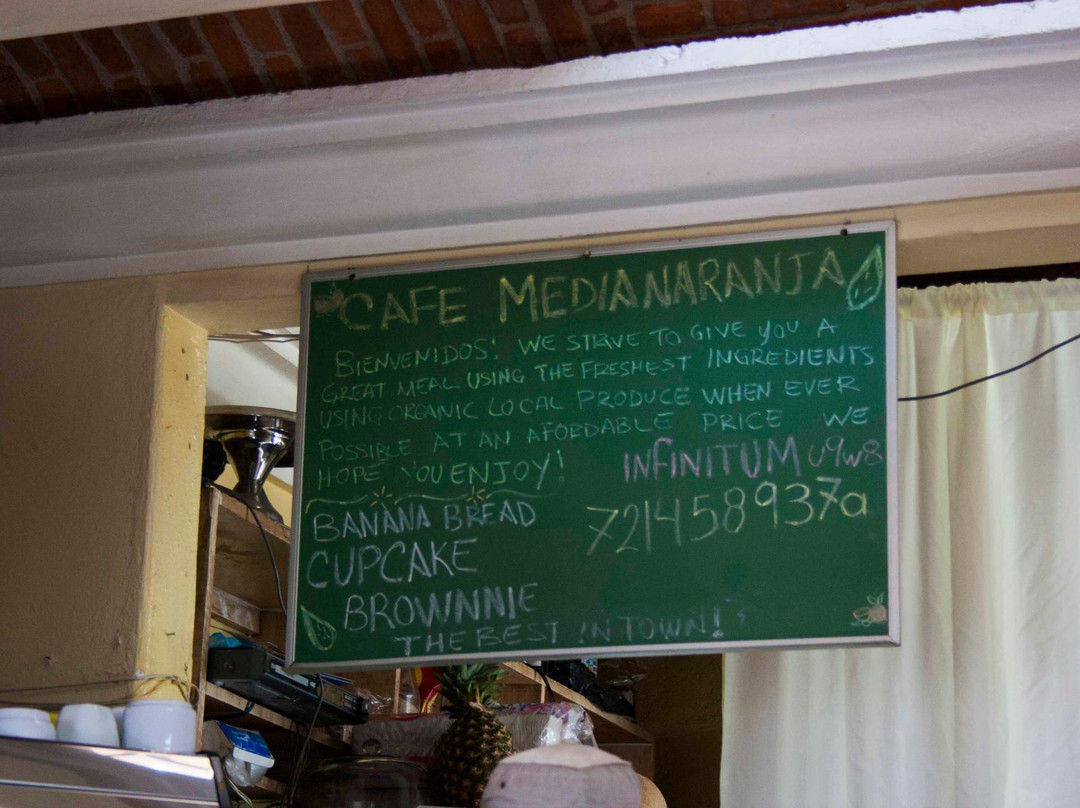 CAFE MEDIANARANJA
BIENVENIDOS! WE STRIVE TO GIVE YOU A
GREAT MEAL USING THE FRESHEST INGREDIENTS
USING ORGANIC LOCAL PRODUCE WHEN EVER
POSSIBLE AT AN AFORDABLE PRICE WE
HOPE YOU ENJOY!
INFINITUM u9w8
721458937a
BANANA BREAD
CUPCAKE
BROWNNIE
THE BEST IN TOWN!